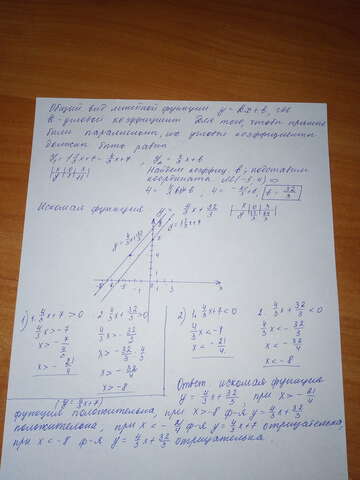 Общий вид линейной функции y = kx + b, где
k - угловой коэффициент для того, чтобы прямые
были параллельны, их угловые коэффициенты
должны быть равны
y₁ = 1 1/3 x + 7 = 4/3 x + 7, y₂ = 4/3 x + b
Найдем коэффиц. b; подставим
координаты
4 = b = 32/3
Искомая функция y = 4/3 x + 32/3
y = 4/3 x + 32/3
1) 1. 4/3 x + 7 > 0 2. 4/3 x + 32/3 > 0
4/3 x > -7 4/3 x > -32/3
x > -21/4 x > -32/4
x > -8
2) 1. 4/3 x + 7 < 0 2. 4/3 x + 32/3 < 0
4/3 x < -7 4/3 x < -32/3
x < -21/4 x < -32/4
x < -8
Ответ: искомая функция
y = 4/3 x + 32/3, при x > -21/4
(y = 4/3 x + 7)
функция положительна, при x > -8 ф-я y = 4/3 x + 32/3
положительна, при x < -21/4 ф-я y = 4/3 x + 7 отрицательна,
при x < -8 ф-я y = 4/3 x + 32/3 отрицательна